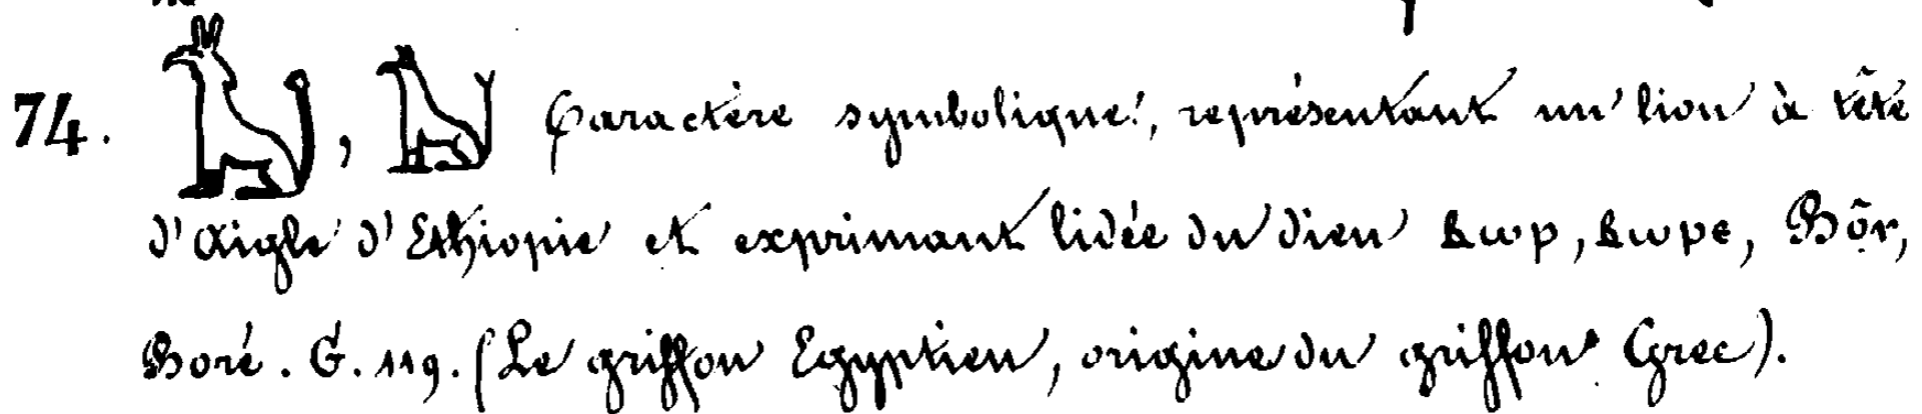 74. , Caractère symbolique, représentant un lion à tête
d'aigle d'Ethiopie et exprimant lidée du dieu ⲃⲱⲣ, ⲃⲱⲣⲉ, Bôr,
Boré. G. 119. (Le griffon Egyptien, origine du griffon Grec).